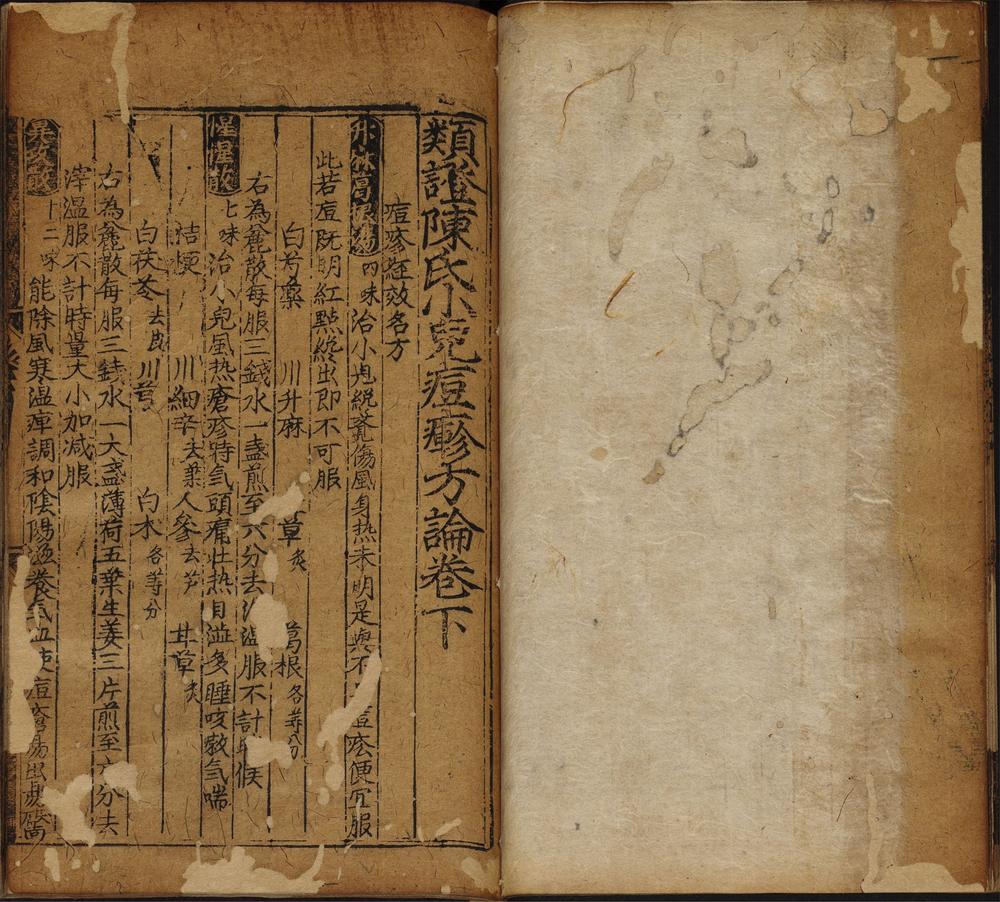 類證陳氏小兒痘疹方論卷下
痘疹經效名方
升麻葛根湯 四味 治小児纔覺傷風身热未明是與不是痘疹便宜服
此若痘既明紅㸃綘出即不可服
白芍薬 川升麻 甘草炙 葛根各等分
右為麄散每服三錢水一盞煎至六分去滓温服不計時候
惺惺散 七味 治小兒風热瘡疹時气頭痛壮热目澁多睡咳嗽气喘
桔梗 川細辛去葉 人參去芦 甘草炙
白茯苓去皮 川芎 白术各等分
右為麄散每服三錢水一大盞薄荷五葉生姜三片煎至六分去
滓温服不計時量大小加减服
異攻散 十二味 能除風寒温痺調和陰陽滋養气血使痘瘡易出